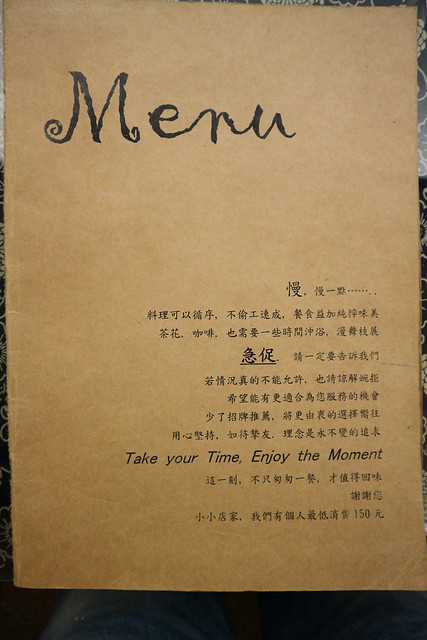 Menu
慢，慢一點‧‧‧‧‧‧‧. .
料理可以循序，不偷工速成，餐食益加純粹味美
茶花．咖啡．也需要一些時間沖浴，漫舞枝展
急促， 請一定要告訴我們
若情況真的不能允許，也請諒解婉拒
希望能有更適合為您服務的機會
少了招牌推薦，將更由衷的選擇嚮往
用心堅持，如待摯友．理念是永不變的追求
Take your Time, Enjoy the Moment
這一刻，不只匆匆一餐，才值得回味
謝謝您
小小店家，我們有個人最低消費 150 元